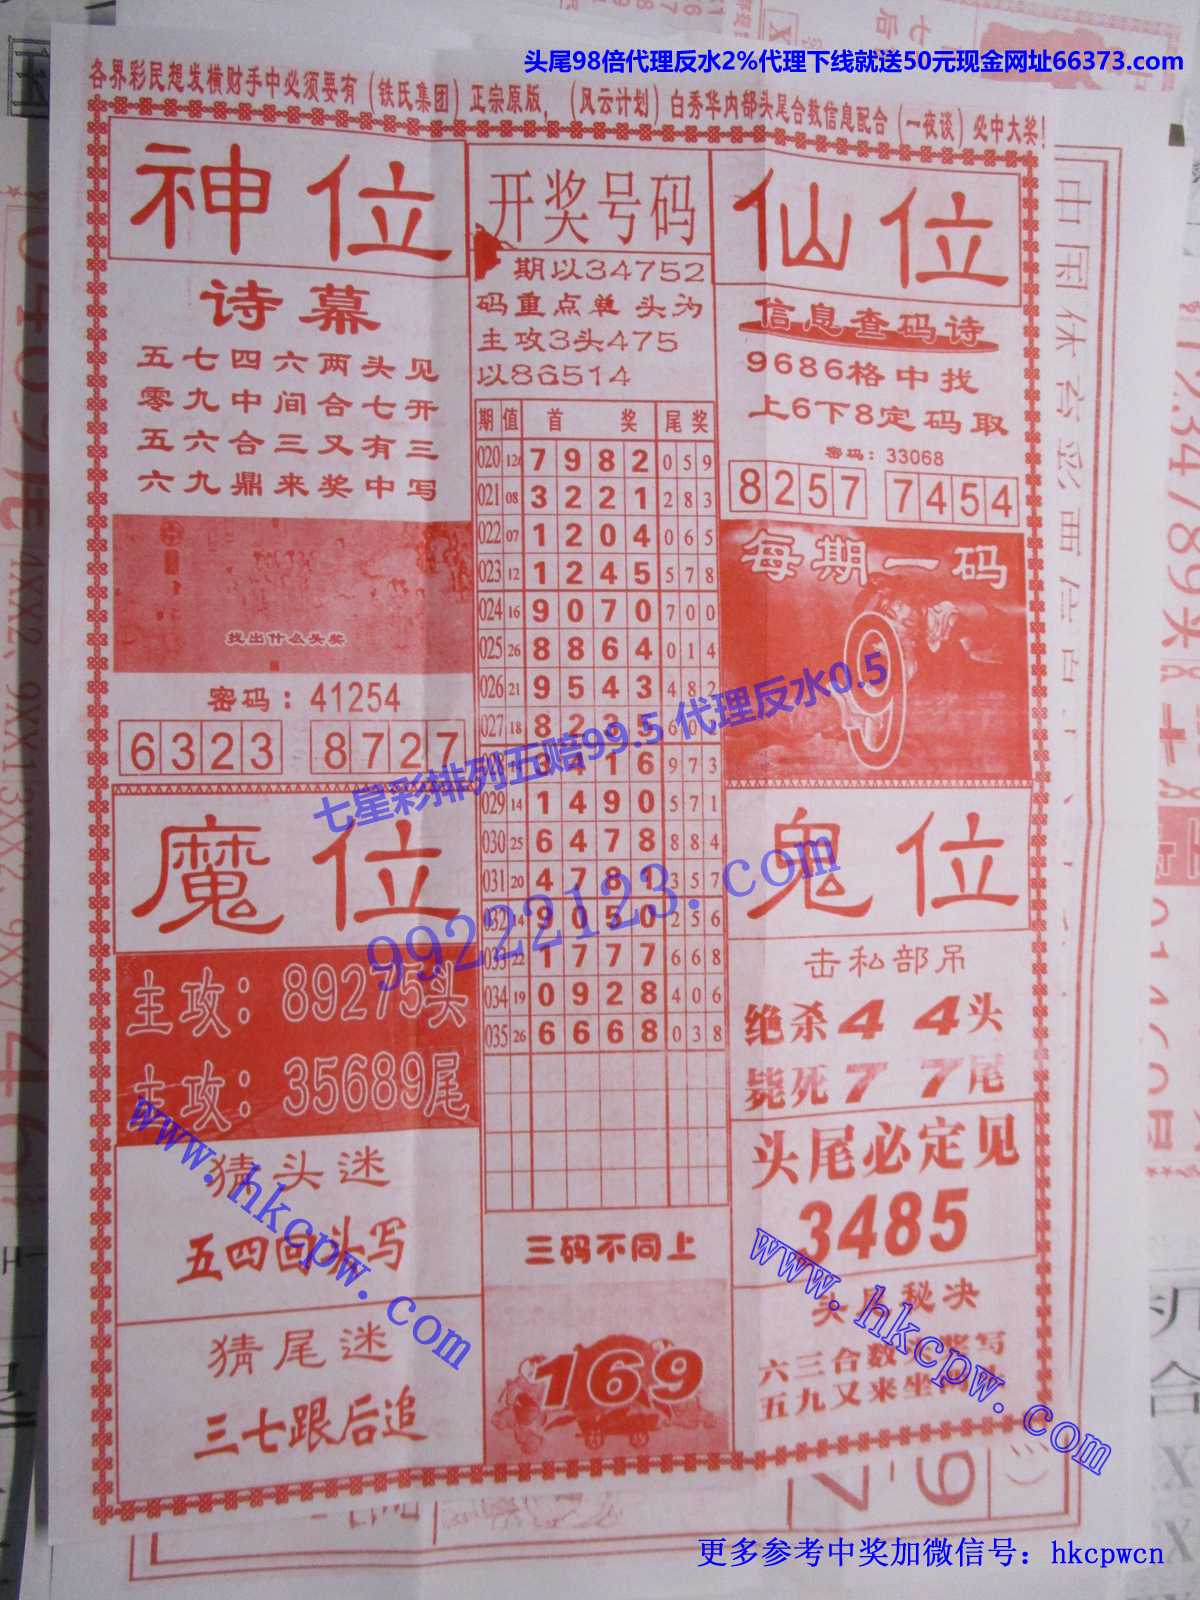 头尾98倍代理反水2%代理下线就送50元现金网址66373.com
各界彩民想发横财手中必须要有(铁氏集团)正宗原版，(风云计划)白秀华内部头尾合数信息配合(一夜谈)必中大奖!
神位
诗幕
五七四六两头见
零九中间合七开
五六合三又有三
六九鼎来奖中写
找出什么头奖
密码：41254
6323 8727
开奖号码
期以34752
码重点单 头为
主攻3头475
以86514
期 值 首 奖 尾奖
020 7982 059
021 08 3221 283
022 07 1204 065
023 12 1245 578
024 16 9070 700
025 26 8864 014
026 21 9543 482
027 18 8235
3416 973
029 14 1490 571
030 25 6478 884
031 20 4781 357
032 14 9050 256
033 22 1777 668
034 19 0928 406
035 26 6668 038
三码不同上
169
仙位
信息查码诗
9686格中找
上6下8定码取
密码：33068
8257 7454
每期一码
9
魔位
主攻：89275头
主攻：35689尾
猜头迷
五四回头写
猜尾迷
三七跟后追
鬼位
击私部吊
绝杀44头
毙死77尾
头尾必定见
3485
头尾秘决
六三合数头奖写
五九又来坐
七星彩排列五赔99.5 代理反水0.5
99222123.com
www.hkcpw.com
www.hkcpw.com
更多参考中奖加微信号：hkcpwcn